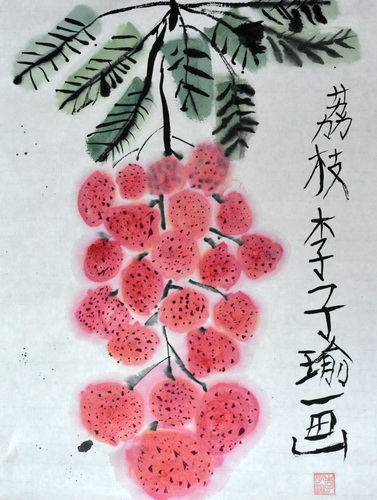 荔枝李子瑜画